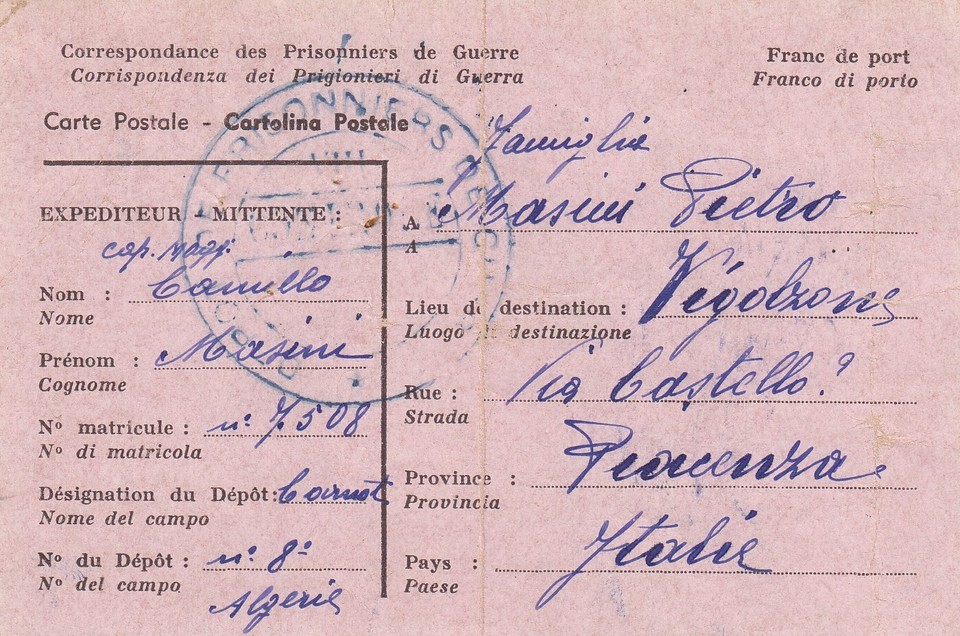 Correspondance des Prisonniers de Guerre
Corrispondenza dei Prigionieri di Guerra
Franc de port
Franco di porto
Carte Postale - Cartolina Postale
EXPEDITEUR - MITTENTE :
cap. magg.
Nom : Camillo
Nome
Prénom : Masini
Cognome
Nº matricule : n: 7.508
Nº di matricola
Désignation du Dépôt: Carnot
Nome del campo
Nº du Dépôt : n: 8:
Nº del campo
Algerie
Famiglia
A Masini Pietro
A
Lieu de destination : Vigolzone
Luogo di destinazione
Rue : Via Castello
Strada
Province : Piacenza
Provincia
Pays : Italie
Paese
PRISONNIERS DE